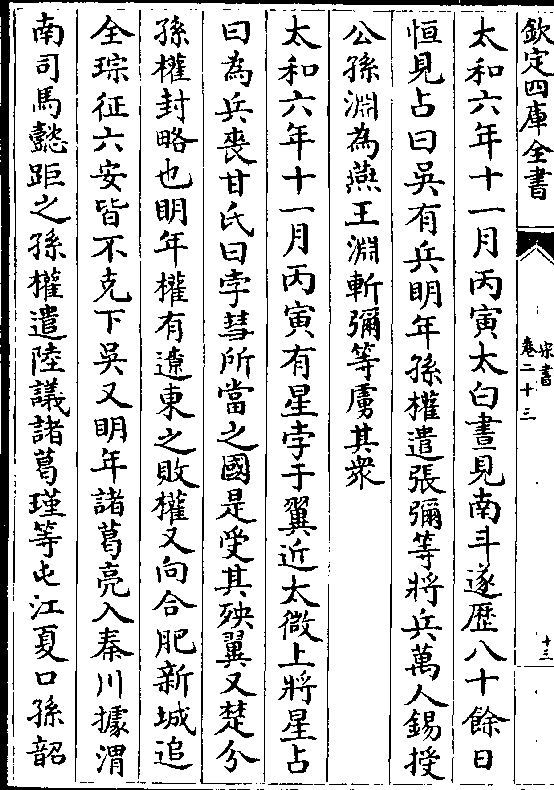 欽定四庫全書
宋書
卷二十三
十三
太和六年十一月丙寅太白晝見南斗遂歴八十餘日
恒見占曰吳有兵明年孫權遣張彌等將兵萬人錫授
公孫淵為燕王淵斬彌等虜其衆
太和六年十一月丙寅有星孛于翼近太微上將星占
曰為兵喪甘氏曰孛彗所當之國是受其殃翼又楚分
孫權封略也明年權有遼東之敗權又向合肥新城追
全琮征六安皆不克下吳又明年諸葛亮入秦川據渭
南司馬懿距之孫權遣陸議諸葛瑾等屯江夏口孫韶